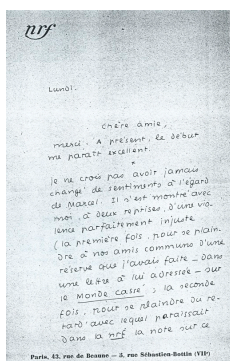 nrf
Lundi.
chère amie,
merci. A présent, le début
me paraît excellent.
*
je ne crois pas avoir jamais
changé de sentiments à l'égard
de Marcel. Il s'est montré avec
moi, à deux reprises, d'une vio-
lence parfaitement injuste
(la première fois, pour se plain-
dre à nos amis communs d'une
réserve que j'avais faite - dans
une lettre à lui adressée - sur
le Monde cassé ; la seconde
fois, pour se plaindre du re-
tard avec lequel paraissait
dans la nrf la note sur ce
Paris, 43, rue de Beaune — 5, rue Sébastien-Bottin (VIIe)